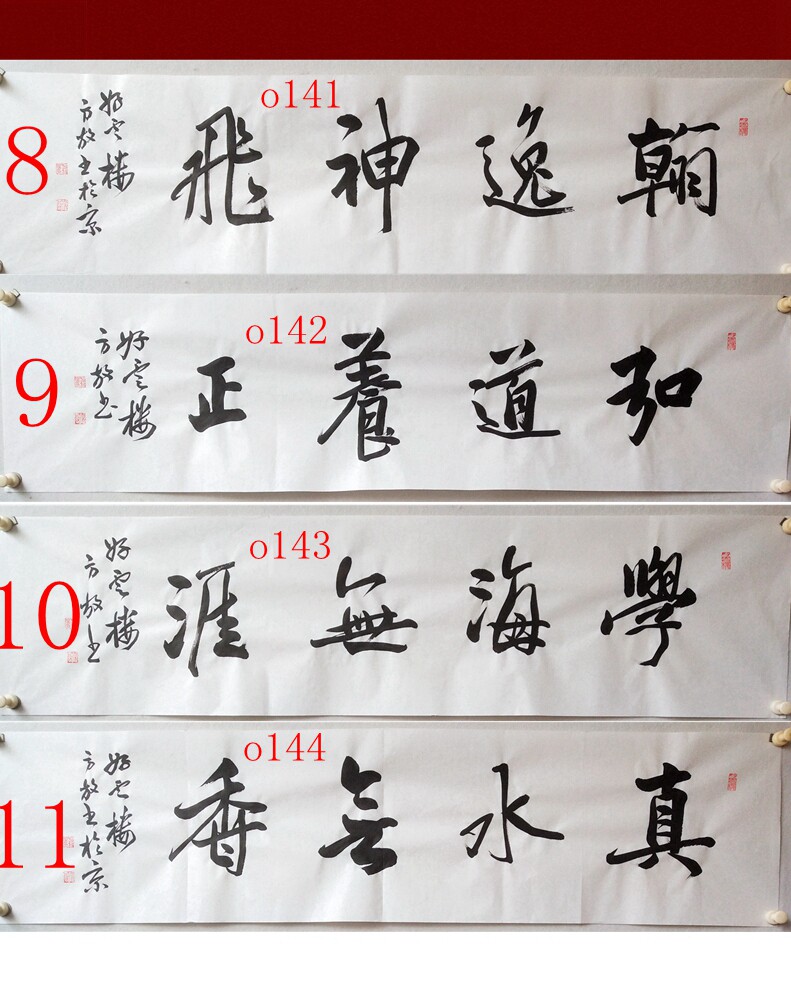 8
o141
翰逸神飛
好雲楼
方放书於京
9
o142
弘道養正
好雲楼
方放书
10
o143
學海無涯
好雲楼
方放书
11
o144
真水無香
好雲楼
方放书於京